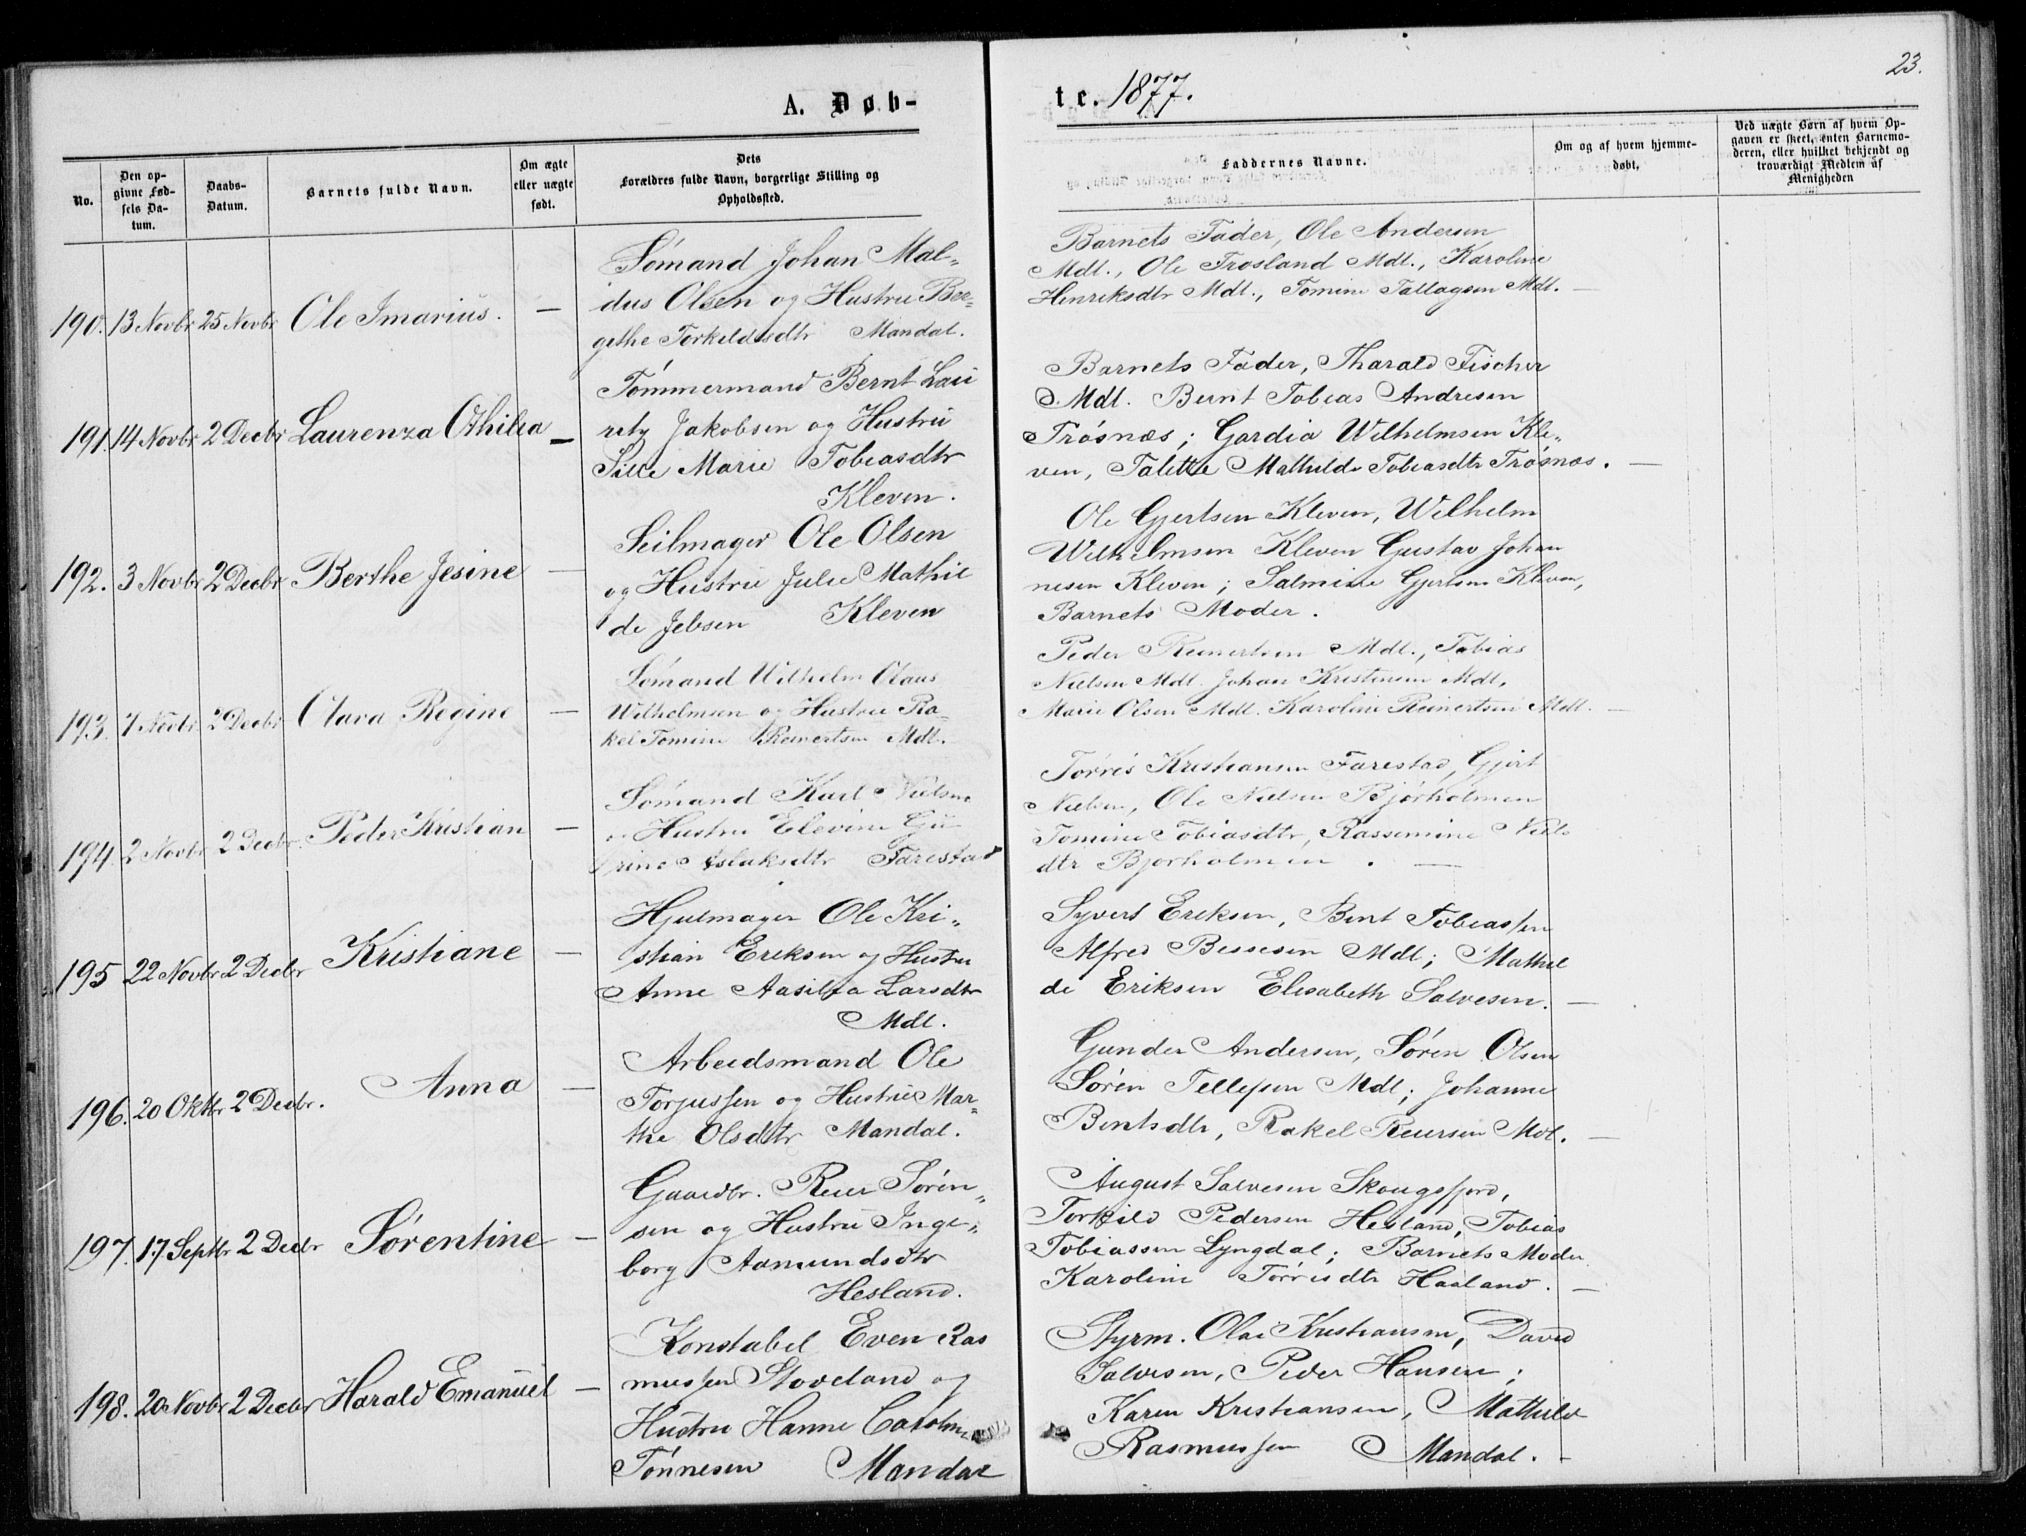 23.
A. Døb-
te. 1877.
No.
Den op-
givne Fød-
sels Da-
tum.
Daabs-
Datum.
Barnets fulde Navn.
Om ægte
eller uægte
født.
Dets
Forældres fulde Navn, borgerlige Stilling og
Opholdssted.
Faddernes Navne.
Om og af hvem hjemme-
døbt.
Ved uægte Børn af hvem Op-
gaven er skeet, enten Barnemo-
deren, eller hvilket bekjendt og
troværdigt Medlem af
Menigheden
190. 13 Novbr 25 Novbr Ole Imarius. —
Sømand Johan Mal-
dus Olsen og Hustru Ber-
gethe Torkeldsdtr Mandal.
Barnets Fader, Ole Andersen
Mdl., Ole Frøsland Mdl., Karoline
Henriksdtr Mdl., Tomine Tallagsen Mdl. —
191. 14 Novbr 2 Decbr Laurenza Othilia —
Tømmermand Bernt Lau
retz Jakobsen og Hustru
Sille Marie Tobiasdtr
Kleven.
Barnets Fader, Tharald Fischer
Mdl. Bernt Tobias Andresen
Trøsnæs; Gardia Wilhelmsen Kle-
ven, Talette Mathilde Tobiasdtr Trøsnæs. —
192. 3 Novbr 2 Decbr Berthe Jesine —
Seilmager Ole Olsen
og Hustru Julie Mathil
de Jebsen Kleven
Ole Gjertsen Kleven, Wilhelm
Wilhelmsen Kleven Gustav Johan
nesen Kleven; Salmine Gjertsen Kleven,
Barnets Moder.
193. 7 Novbr 2 Decbr Clara Regine —
Sømand Wilhelm Olaus
Wilhelmsen og Hustru Ra-
kel Tomine Reinertsen Mdl.
Peder Reinertsen Mdl., Tobias
Nielsen Mdl. Johan Kristensen Mdl,
Marie Olsen Mdl. Karoline Reinertsen Mdl. —
194 2 Novbr 2 Decbr. Peder Kristian —
Sømand Karl Nielsen
og Hustru Elevine Gu
rine Aslaksdtr Farestad
Tørres Kristiansen Farestad, Gjert
Nielsen, Ole Nielsen Bjørholmen
Tomine Tobiasdtr, Rassemine Niels
dtr Bjørholmen. —
195 22 Novbr 2 Decbr Kristiane —
Hjulmager Ole Kri-
stian Eriksen og Hustru
Anne Aasilia Larsdtr
Mdl.
Syvert Eriksen, Bent Tobiassen
Alfred Bessesen Mdl; Mathil
de Eriksen Elisabeth Salvesen. —
196. 20 Oktbr 2 Decbr. Anna —
Arbeidsmand Ole
Torjussen og Hustru Mar-
the Olsdtr Mandal.
Gunder Andersen, Søren Olsen
Søren Tellefsen Mdl; Johanne
Bentsdtr, Rakel Reiersen Mdl. —
197. 17 Septbr 2 Decbr Sørentine —
Gaardbr. Reier Søren-
sen og Hustru Inge-
borg Aamundsdtr
Hesland.
August Salvesen Skougsfjord,
Torkild Pedersen Hesland, Tobias
Tobiassen Lyngdal; Barnets Moder
Karoline Tørresdtr Haaland. —
198. 20 Novbr 2 Decbr Harald Emanuel —
Konstabel Even Ras
mussen Stoveland og
Hustru Hanne Catoline
Tønnesen Mandal
Styrm. Olai Kristiansen, David
Salvesen, Peder Hansen;
Karen Kristiansen, Mathilde
Rasmussen Mandal. —